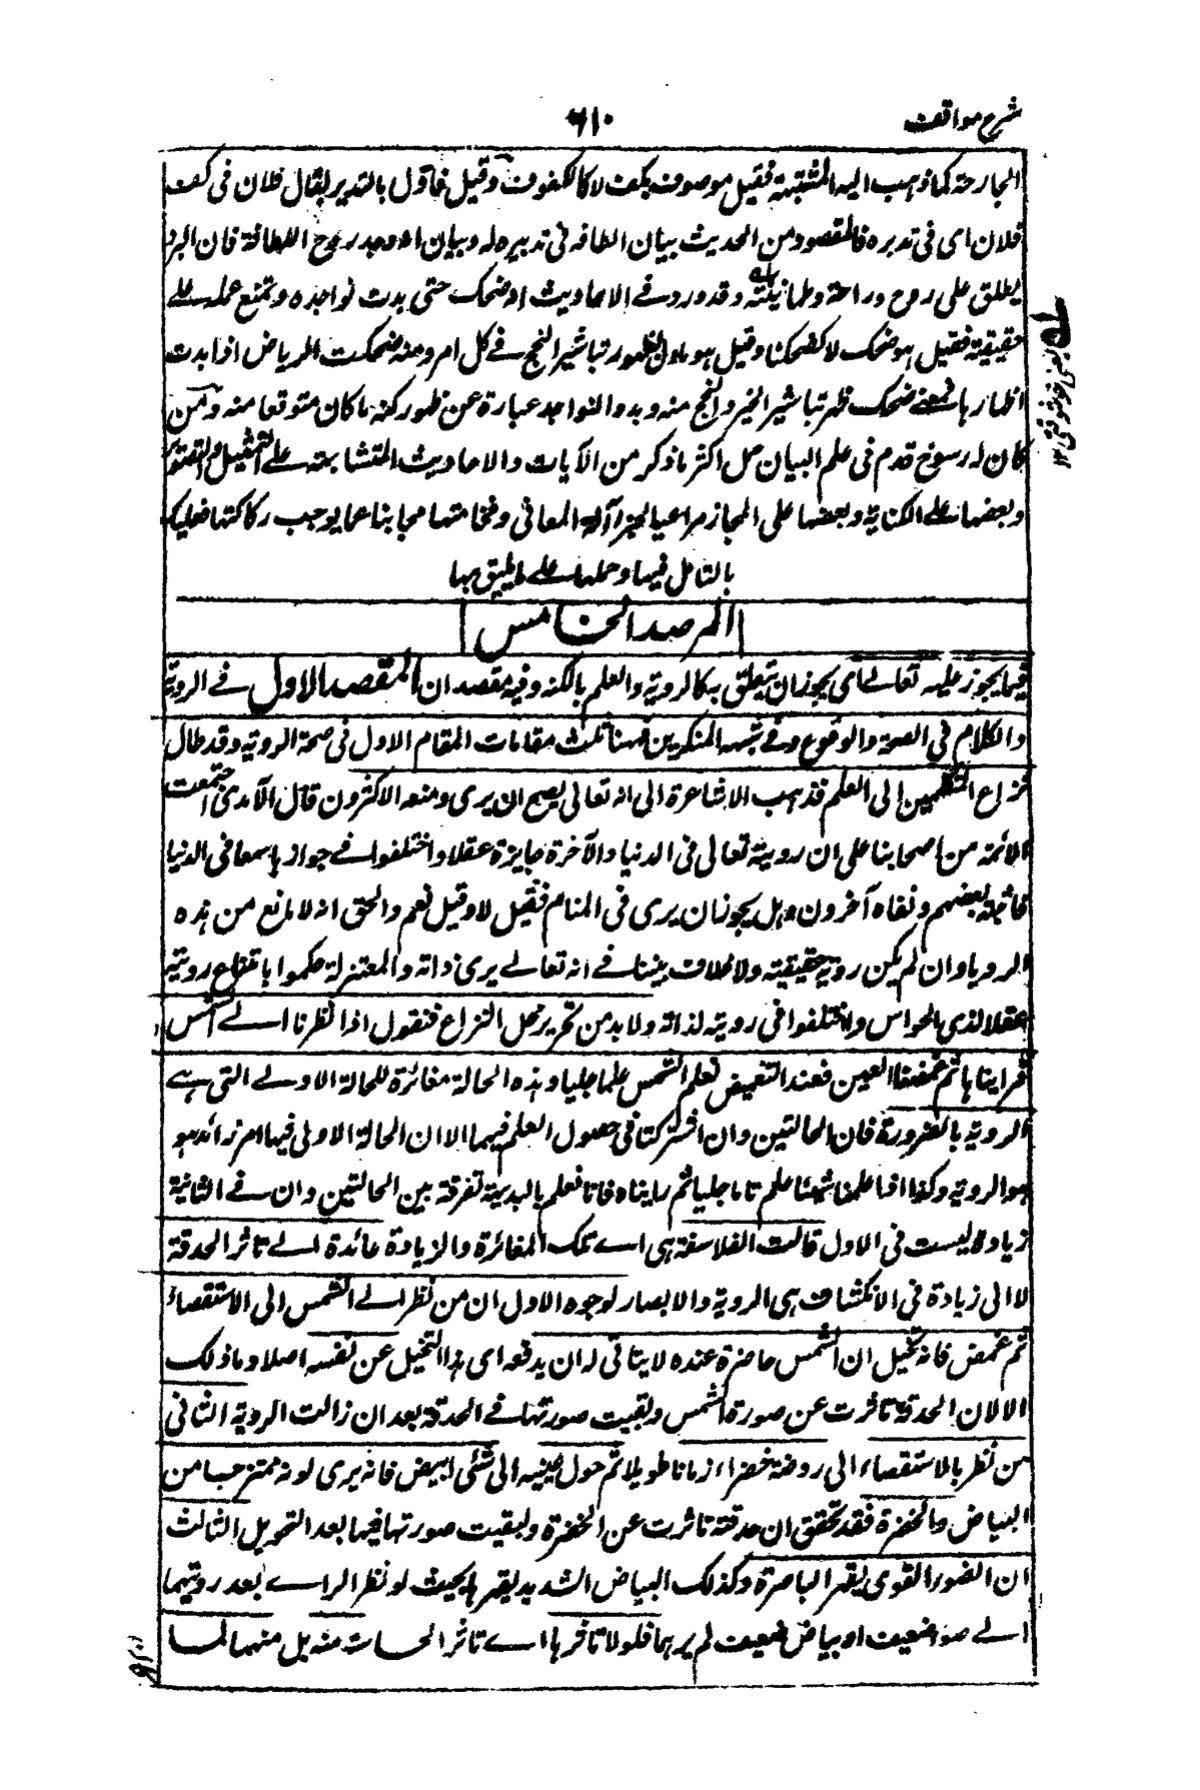 شرح مواقف
٦١٠
الجارحة كما ذهب اليه المشبهة فقيل موصوف بكف لا كالكفوف وقيل مأول بالتدبير يقال فلان فى كف
فلان اى فى تدبره فالمقصود من الحديث بيان الطافه فى تدبيره له وبيان انه وجد روح اللطافة فان البرد
يطلق على روح وراحة وطمانينته وقد ورد فے الاحاديث انه ضحك حتى بدت نواجذه ويمتنع حمله علے
حقيقيته فقيل هو ضحك لا كضحكنا وقيل هو مأول بظهور تباشير النجح فے كل امر ومنه ضحكت الرياض اذا بدت
ازهارها فمعنے ضحك ظهر تباشير الخير والنجح منه وبدو النواجذ عبارة عن ظهور كنه ما كان متوقعا منه ومن
كان له رسوخ قدم فى علم البيان حمل اكثر ما ذكر من الآيات والاحاديث المتشابهة علے التمثيل والتصوير
وبعضها علے الكناية وبعضها على المجاز مراعيا لجزالة المعانى وفخامتها مجانبا عما يوجب ركاكتها فعليك
بالتامل فيها وحملها علے ما يليق بها
المرصد الخامس
فيما يجوز عليه تعالے اى يجوز ان يتعلق به كالروية والعلم بالكنه وفيه مقصدان المقصد الاول فے الروية
والكلام فى الصحة والوقوع وفے شبه المنكرين فههنا ثلث مقامات المقام الاول فى صحة الروية وقد طال
نزاع المنتمين الى العلم فذهب الاشاعرة الى انه تعالى يصح ان يرى ومنعه الاكثرون قال الآمدى اجتمعت
الائمة من اصحابنا على ان روية تعالى فى الدنيا والآخرة جايزة عقلا واختلفوا فے جوازها سمعا فى الدنيا
فاثبته بعضهم ونفاه آخرون وهل يجوز ان يرى فى المنام فقيل لا وقيل نعم والحق انه لا مانع من هذه
الرويا وان لم يكن روية حقيقية ولا خلاف بيننا فے انه تعالے يرى ذاته والمعتزلة حكموا بامتناع رويته
عقلا لذى الحواس واختلفوا فى رويته لذاته ولا بد من تحرير محل النزاع فنقول اذا نظرنا الے الشمس
فرايناها ثم غمضنا العين فعند التغميض نعلم الشمس علما جليا وهذه الحالة مغائرة للحالة الاولے التى هے
الروية بالضرورة فان الحالتين وان اشتركتا فى حصول العلم فيهما الا ان الحالة الاولى فيها امر زائد هو
هو الروية وكذا اذا علمنا شيئا علم تاما جليا ثم رايناه فانا نعلم بالبديهة تفرقة بين الحالتين وان فے الثانية
زيادة ليست فى الاول قالت الفلاسفة هى اے تلك المغائرة والزيادة عائدة الے تاثر الحدقة
لا الى زيادة فى الانكشاف هى الروية والابصار لوجوه الاول ان من نظر الے الشمس الى الاستقصاء
ثم غمض فانه يتخيل ان الشمس حاضرة عنده لا يتاتى له ان يدفعه اى هذا التخيل عن نفسه اصلا وما ذلك
الا لان الحدقة تاثرت عن صورة الشمس وبقيت صورتها فے الحدقة بعد ان زالت الروية الثانى
من نظر بالاستقصاء الى روضة خضراء زمانا طويلا ثم حول عينيه الى شئى ابيض فانه يرى لونه ممتزجا من
البياض والخضرة فقد تحقق ان حدقته تاثرت عن الخضرة وبقيت صورتها فيها بعد التحويل الثالث
ان الضوء القوى يقهر الباصرة وكذلك البياض الشديد يقهرها بحيث لو نظر الراے بعد رويتهما
الے ضوء ضعيف او بياض ضعيف لم يرهما فلولا تاثرها اے تاثر الحاسة منه بل منهما لما